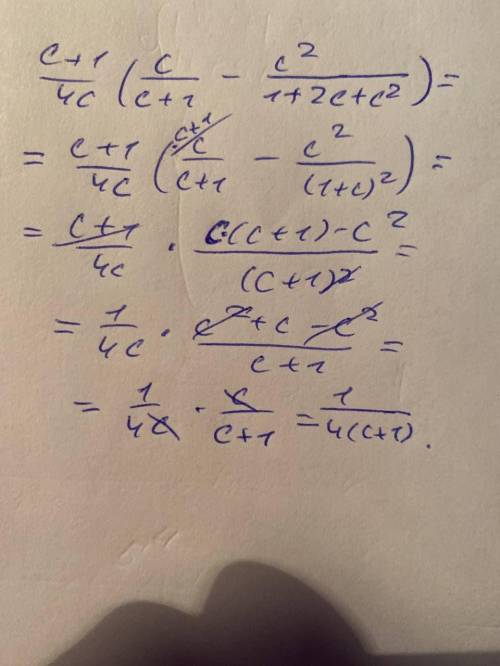 \frac{c+1}{4c} \left( \frac{c}{c+1} - \frac{c^2}{1+2c+c^2} \right) =
= \frac{c+1}{4c} \left( \frac{c^{/c+1}}{c+1} - \frac{c^2}{(1+c)^2} \right) =
= \frac{c+1}{4c} \cdot \frac{c(c+1)-c^2}{(c+1)^2} =
= \frac{1}{4c} \cdot \frac{c^2+c-c^2}{c+1} =
= \frac{1}{4c} \cdot \frac{c}{c+1} = \frac{1}{4(c+1)}.